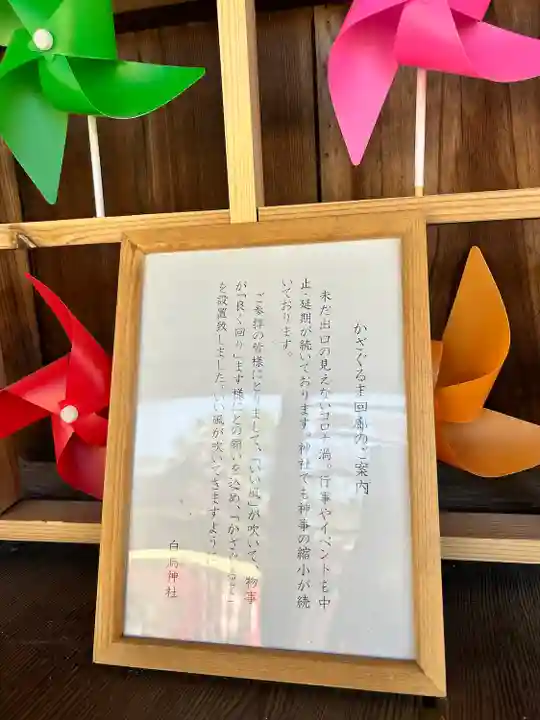 かざぐるま回廊のご案内
未だ出口の見えないコロナ渦。行事やイベントも中
止・延期が続いております。神社でも神事の縮小が続
いております。
ご参拝の皆様にとりまして、「いい風」が吹いて、物事
が「良く回り」ます様にとの願いを込め、「かざぐるま」
を設置致しました。いい風が吹いてきますように
白鳥神社